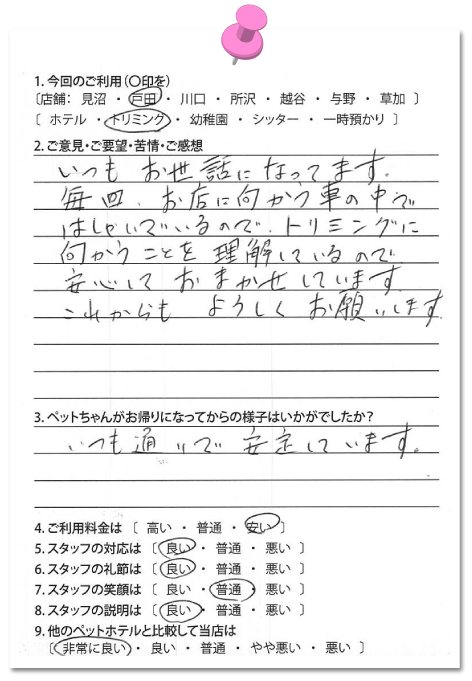 1. 今回のご利用(〇印を)
〔店舗: 見沼 ・ 戸田 ・ 川口 ・ 所沢 ・ 越谷 ・ 与野 ・ 草加 〕
〔 ホテル ・ トリミング ・ 幼稚園 ・ シッター ・ 一時預かり 〕
2. ご意見・ご要望・苦情・ご感想
いつも お世話になってます.
毎回、お店に向かう車の中で
はしゃいでいるので、トリミングに
向かうことを理解しているので
安心して おまかせしています
これからも よろしく お願いします
3. ペットちゃんがお帰りになってからの様子はいかがでしたか?
いつも通りで 安定しています。
4. ご利用料金は 〔 高い ・ 普通 ・ 安い 〕
5. スタッフの対応は 〔 良い ・ 普通 ・ 悪い 〕
6. スタッフの礼節は 〔 良い ・ 普通 ・ 悪い 〕
7. スタッフの笑顔は 〔 良い ・ 普通 ・ 悪い 〕
8. スタッフの説明は 〔 良い ・ 普通 ・ 悪い 〕
9. 他のペットホテルと比較して当店は
〔 非常に良い ・ 良い ・ 普通 ・ やや悪い ・ 悪い 〕